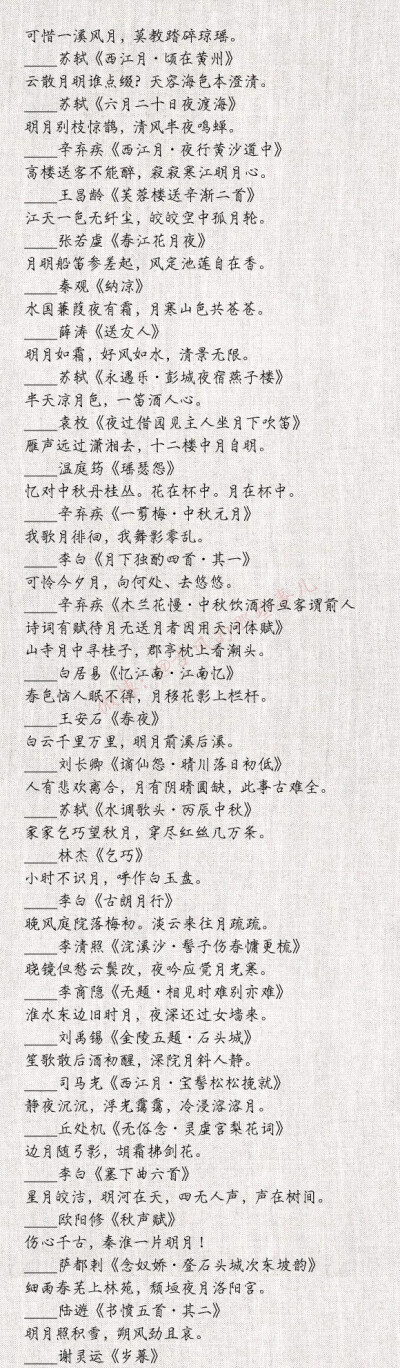 可惜一溪风月，莫教踏碎琼瑶。
____苏轼《西江月·顷在黄州》
云散月明谁点缀？天容海色本澄清。
____苏轼《六月二十日夜渡海》
明月别枝惊鹊，清风半夜鸣蝉。
____辛弃疾《西江月·夜行黄沙道中》
高楼送客不能醉，寂寂寒江明月心。
____王昌龄《芙蓉楼送辛渐二首》
江天一色无纤尘，皎皎空中孤月轮。
____张若虚《春江花月夜》
月明船笛参差起，风定池莲自在香。
____秦观《纳凉》
水国蒹葭夜有霜，月寒山色共苍苍。
____薛涛《送友人》
明月如霜，好风如水，清景无限。
____苏轼《永遇乐·彭城夜宿燕子楼》
半天凉月色，一笛酒人心。
____袁枚《夜过借园见主人坐月下吹笛》
雁声远过潇湘去，十二楼中月自明。
____温庭筠《瑶瑟怨》
忆对中秋丹桂丛。花在杯中。月在杯中。
____辛弃疾《一剪梅·中秋元月》
我歌月徘徊，我舞影零乱。
____李白《月下独酌四首·其一》
可怜今夕月，向何处、去悠悠。
____辛弃疾《木兰花慢·中秋饮酒将旦客谓前人
诗词有赋待月无送月者因用天问体赋》
山寺月中寻桂子，郡亭枕上看潮头。
____白居易《忆江南·江南忆》
春色恼人眠不得，月移花影上栏杆。
____王安石《春夜》
白云千里万里，明月前溪后溪。
____刘长卿《谪仙怨·晴川落日初低》
人有悲欢离合，月有阴晴圆缺，此事古难全。
____苏轼《水调歌头·丙辰中秋》
家家乞巧望秋月，穿尽红丝几万条。
____林杰《乞巧》
小时不识月，呼作白玉盘。
____李白《古朗月行》
晚风庭院落梅初。淡云来往月疏疏。
____李清照《浣溪沙·髻子伤春慵更梳》
晓镜但愁云鬓改，夜吟应觉月光寒。
____李商隐《无题·相见时难别亦难》
淮水东边旧时月，夜深还过女墙来。
____刘禹锡《金陵五题·石头城》
笙歌散后酒初醒，深院月斜人静。
____司马光《西江月·宝髻松松挽就》
静夜沉沉，浮光霭霭，冷浸溶溶月。
____丘处机《无俗念·灵虚宫梨花词》
边月随弓影，胡霜拂剑花。
____李白《塞下曲六首》
星月皎洁，明河在天，四无人声，声在树间。
____欧阳修《秋声赋》
伤心千古，秦淮一片明月！
____萨都剌《念奴娇·登石头城次东坡韵》
细雨春芜上林苑，颓垣夜月洛阳宫。
____陆游《书愤五首·其二》
明月照积雪，朔风劲且哀。
____谢灵运《岁暮》